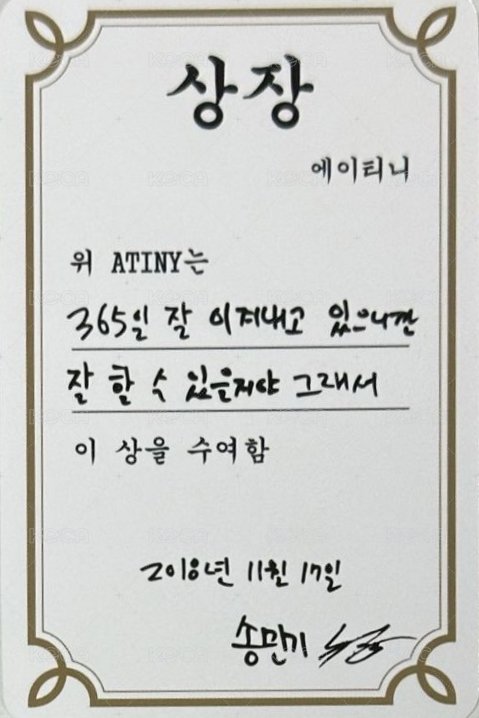 상장
에이티니
위 ATINY는
365일 잘 이겨내고 있으니깐
잘 할 수 있을거야 그래서
이 상을 수여함
2018년 11월 17일
송민기